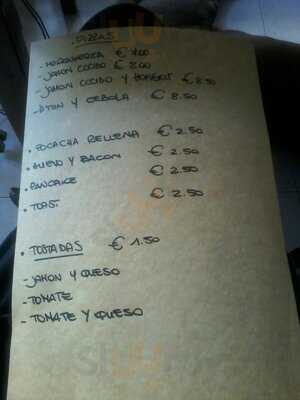 PIZZAS
- MARGHERITA € 7.00
- JAMON COCIDO € 8.00
- JAMON COCIDO Y HONGOS € 8.50
- ATUN Y CEBOLA € 8.50
• FOCACHA RELLENA € 2.50
• HUEVO Y BACON € 2.50
• PANCAKE € 2.50
• TOAST € 2.50
• TOSTADAS € 1.50
- JAMON Y QUESO
- TOMATE
- TOMATE Y QUESO